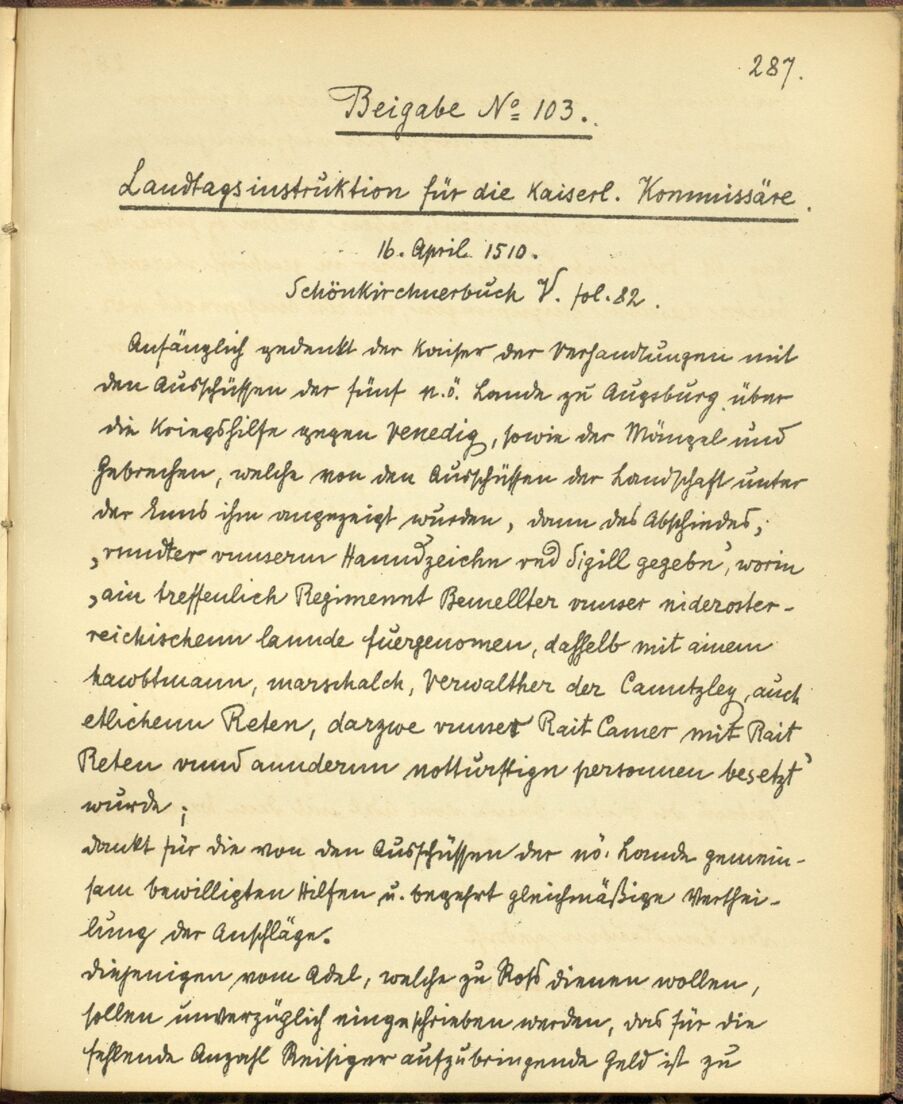 287.
Beigabe No 103.
Landtagsinstruktion für die Kaiserl. Kommissäre.
16. April 1510.
Schönkirchnerbuch V. fol. 82.
Anfänglich gedenkt der Kaiser der Verhandlungen mit
den Ausschüssen der fünf n.ö. Lande zu Augsburg über
die Kriegshilfe gegen Venedig, sowie der Mängel und
Gebrechen, welche von den Ausschüssen der Landschaft unter
der Enns ihm angezeigt wurden, dann des Abschiedes,
„vnndter vnnserm Hanndzeichn vnd Sigill gegebn", worin
„ain treffenlich Regimennt Bemellter vnnser nideroster-
reichischenn lannde fuergenomen, dasselb mit ainem
hawbtmann, marschalch, Verwalther der Canntzley, auch
etlichenn Reten, darzwe vnnser Rait Camer mit Rait
Reten vnnd anndernn notturftign personnen besetzt"
wurde;
dankt für die von den Ausschüssen der nö. Lande gemein-
sam bewilligten Hilfen u. begehrt gleichmäßige Verthei-
lung der Anschläge.
Diejenigen vom Adel, welche zu Roß dienen wollen,
sollen unverzüglich eingeschrieben werden, das für die
fehlende Anzahl Reisiger aufzubringende Geld ist zu